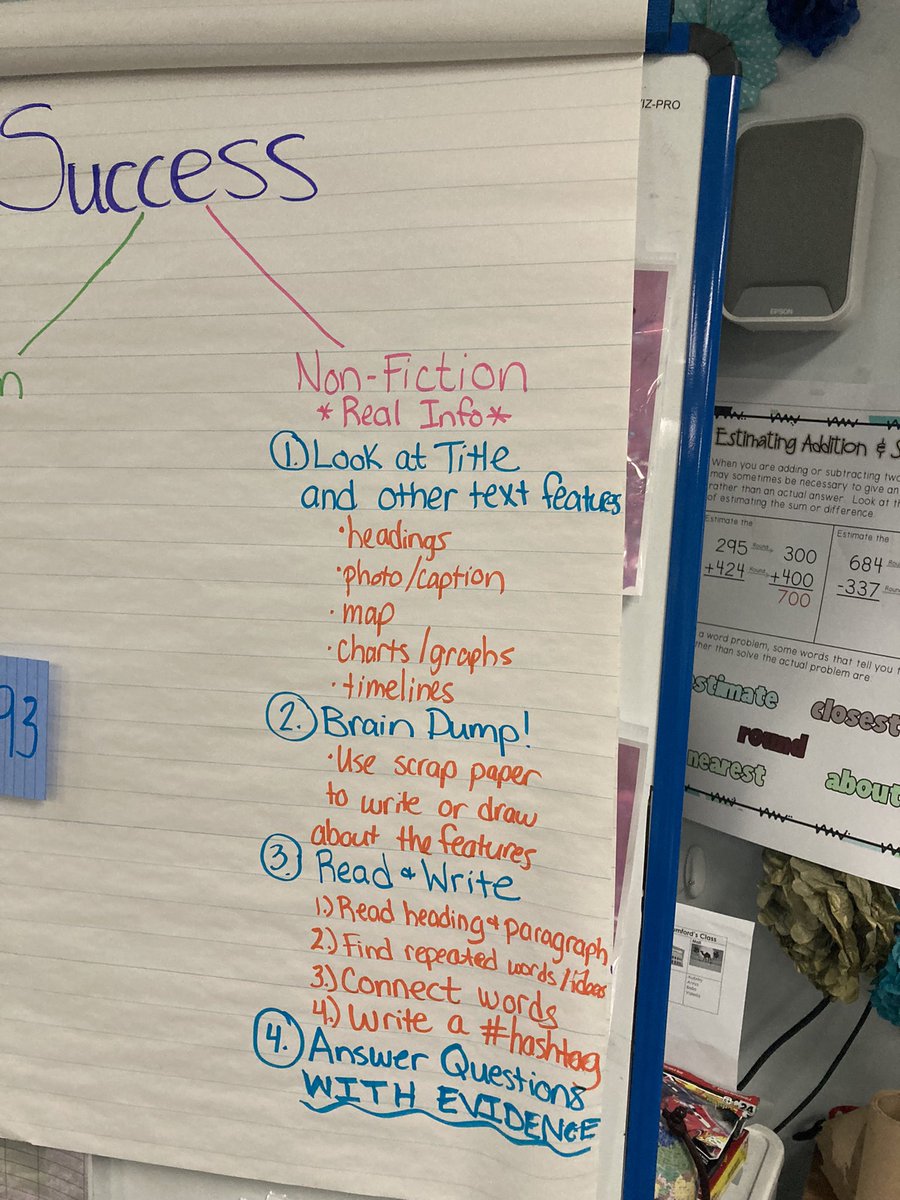 Success
Non-Fiction
*Real Info*
1. Look at Title
and other text features
• headings
• photo/caption
• map
• charts/graphs
• timelines
2. Brain Dump!
• Use scrap paper
to write or draw
about the features
3. Read & Write
1.) Read heading & paragraph
2.) Find repeated words/ideas
3.) Connect words
4.) Write a #hashtag
4. Answer Questions
WITH EVIDENCE
n
93
IZ-PRO
EPSON
Estimating Addition & S
When you are adding or subtracting two
may sometimes be necessary to give an
rather than an actual answer. Look at th
of estimating the sum or difference.
Estimate the
295 Round 300
+424 Round +400
700
Estimate the
684 Rou
-337 Round
a word problem, some words that tell you t
ther than solve the actual problem are:
estimate
closest
round
nearest
about
umford's Class